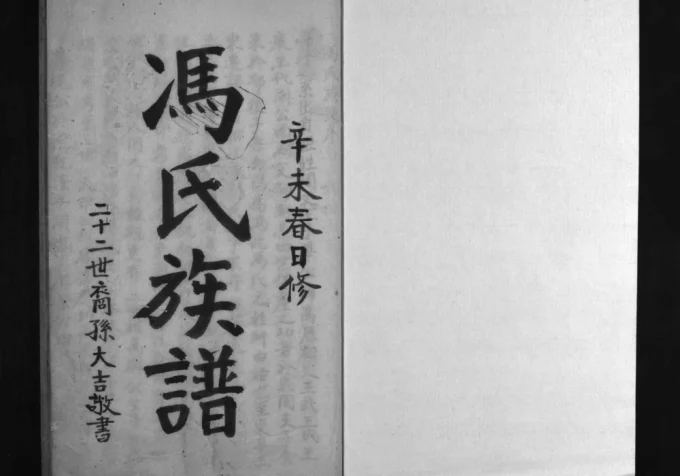 辛未春日修
馮氏族譜
二十二世裔孫大吉敬書